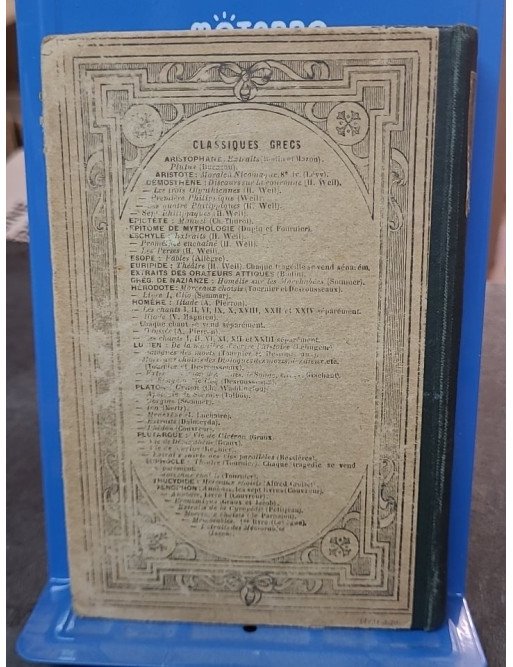 CLASSIQUES GRECS
ARISTOPHANE: Extraits (Bodin et Mazon).
Plutus (Ducasau).
ARISTOTE: Morale à Nicomaque, 8e liv. (Lévy).
DÉMOSTHÈNE: Discours sur la couronne (H. Weil).
— Les trois Olynthiennes (H. Weil).
— Première Philippique (Weil).
— Les quatre Philippiques (H. Weil).
— Sept Philippiques (H. Weil).
ÉPICTÈTE: Manuel (Ch. Thurot).
ÉPITOME DE MYTHOLOGIE (Dupin et Fournier).
ESCHYLE: Extraits (H. Weil).
— Prométhée enchaîné (H. Weil).
— Les Perses (H. Weil).
ÉSOPE: Fables (Allègre).
EURIPIDE: Théâtre (H. Weil). Chaque tragédie se vend séparém.
EXTRAITS DES ORATEURS ATTIQUES (Bodin).
GRÉG. DE NAZIANZE: Homélie sur les Machabées (Sommer).
HÉRODOTE: Morceaux choisis (Tournier et Desrousseaux).
— Livre I, Clio (Sommer).
HOMÈRE: Iliade (A. Pierron).
— Les chants I, II, VI, IX, X, XVIII, XXII et XXIV séparément.
— Iliade (V. Magnien).
Chaque chant se vend séparément.
— Odyssée (A. Pierron).
— Les chants I, II, VI, XI, XII et XXIII séparément.
LUCIEN: De la manière d'écrire l'histoire (Lehugeur).
— Dialogues des morts (Tournier et Desrous.
(Tournier et Desrousseaux).
(Desrousseaux).
PLATON: Criton (Ch. Waddington).
(Talbot).
— Gorgias (Sommer).
— Ion (Mertz).
— Ménexène (J. Luchaire).
— Extraits (Dalmeyda).
— Phédon (Couvreur).
PLUTARQUE: Vie de Cicéron (Graux).
— Vie de Démosthène (Graux).
— Vie de Périclès
— Extraits des vies parallèles (Bessières).
SOPHOCLE: Théâtre (Tournier). Chaque tragédie se vend
séparément.
(Tournier).
THUCYDIDE: Morceaux choisis (Alfred Croiset).
XÉNOPHON: Anabase, les sept livres (Couvreur).
— Anabase, Livre I (Couvreur).
— Économique (Graux et Jacob).
— Extraits de la Cyropédie (Petitjean).
— Morceaux choisis (de Parnajon).
— Mémorables, 1er livre (Lebègue).
— Extraits des Mémorables
(Jacob).